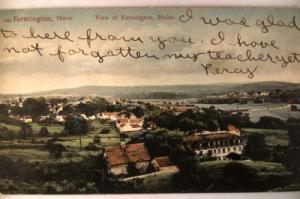 Farmington, Maine. View of Farmington, Maine. I was glad
to here from you I have
not forgotten my teacher yet
Percy